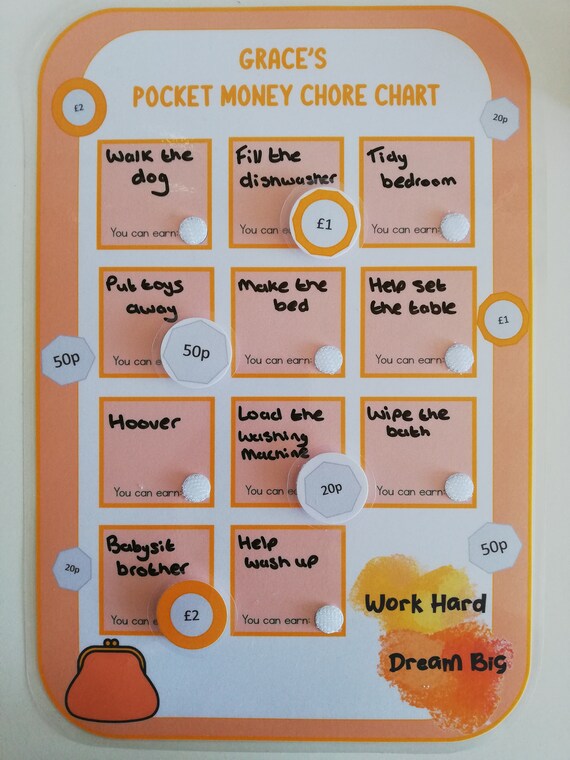 GRACE'S
POCKET MONEY CHORE CHART
£2
20p
Walk the
dog
You can earn:
Fill the
dishwasher
You can e
£1
Tidy
bedroom
You can earn:
Put toys
away
You can e
50p
Make the
bed
You can earn:
Help set
the table
You can earn:
£1
50p
Hoover
You can earn:
Load the
washing
Machine
You can e
20p
Wipe the
bath
You can earn:
Babysit
brother
You can e
£2
Help
wash up
You can earn:
20p
50p
Work Hard
Dream Big